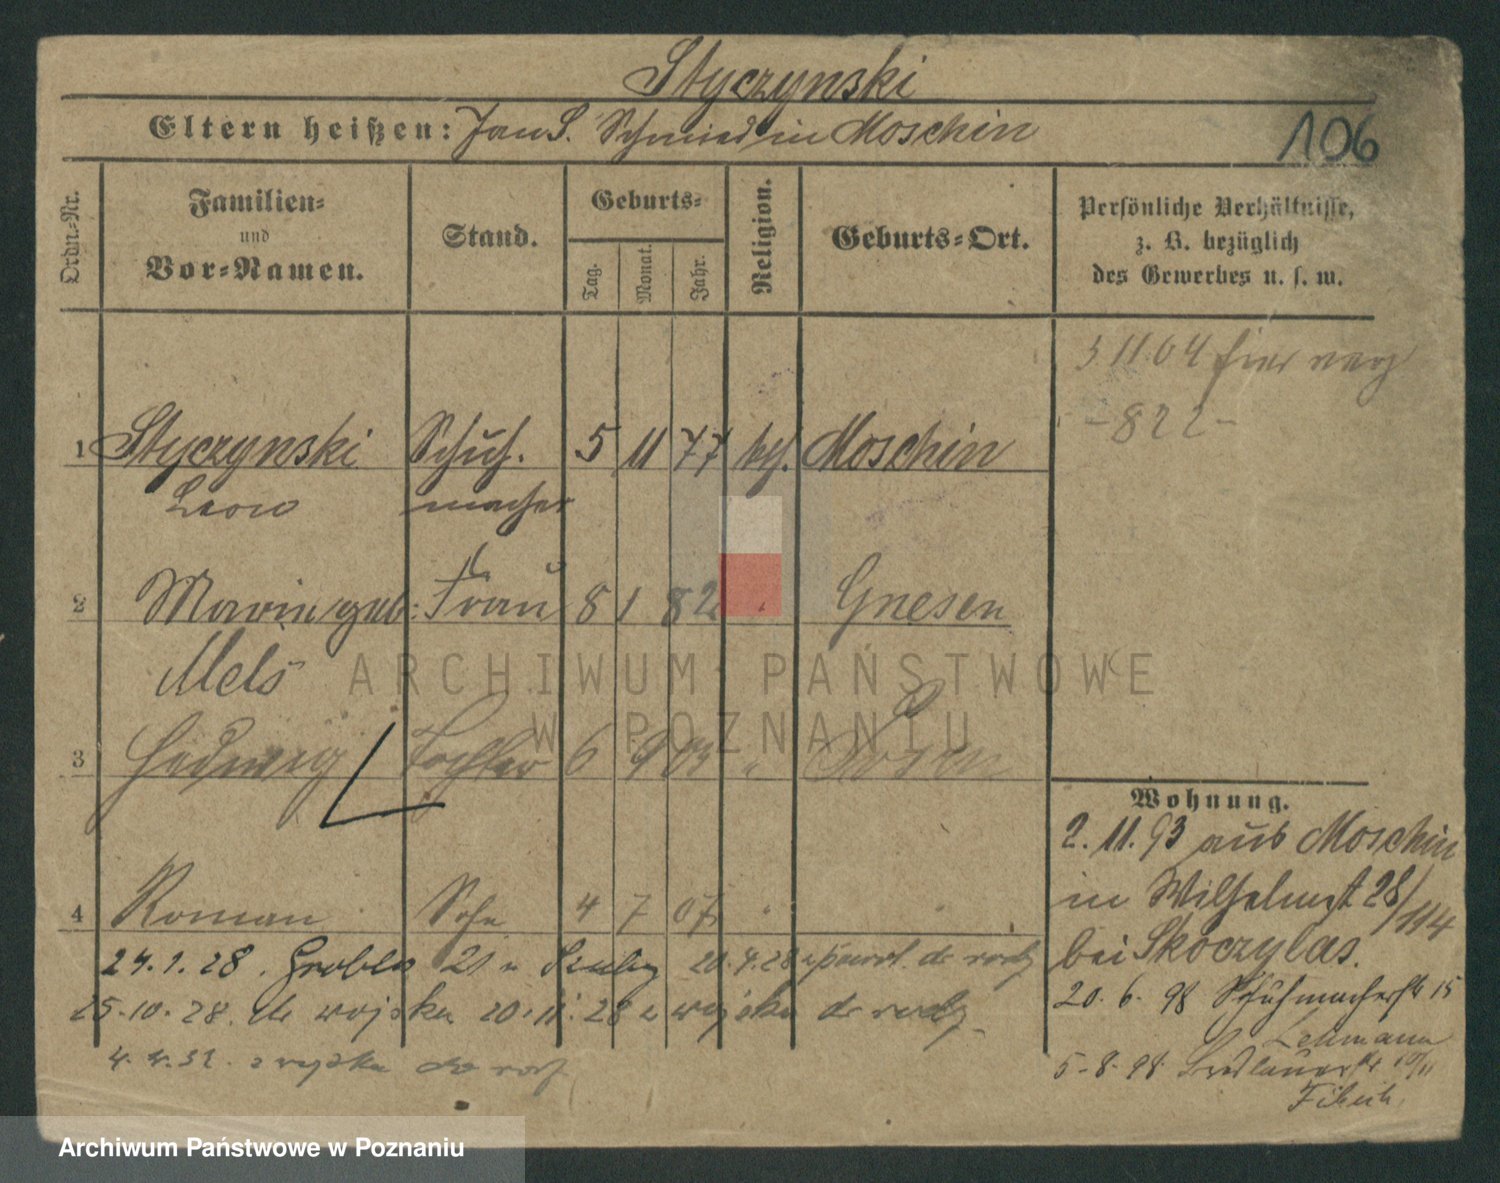 Styczynski
Eltern heißen: Jan S. Schmied in Moschin
106
Ordn.-Nr.
Familien-
und
Vor-Namen.
Stand.
Geburts-
Tag.
Monat.
Jahr.
Religion.
Geburts-Ort.
Persönliche Verhältnisse,
z. B. bezüglich
des Gewerbes u. s. w.
3 11 04
-822-
1 Styczynski Schuh- 5 11 77 kth. Moschin
Leon macher
2 Marie geb: Frau 8 1 82 " Gnesen
Mels
3 Hedwig Tochter 6 9 03 " Posen
4 Roman Sohn 4 7 07 "
24.1.28. Grobla 21 20.4.28
25.10.28. do wojska 20.11.28 z wojska do rodz.
4.4.32. z wojska do rodz.
Wohnung.
2.11.93 aus Moschin
in Wilhelmst 28/114
bei Skoczylas.
20.6.98 Schuhmacherstr 15
Lehmann
5.8.98
ARCHIWUM PAŃSTWOWE
W POZNANIU
Archiwum Państwowe w Poznaniu